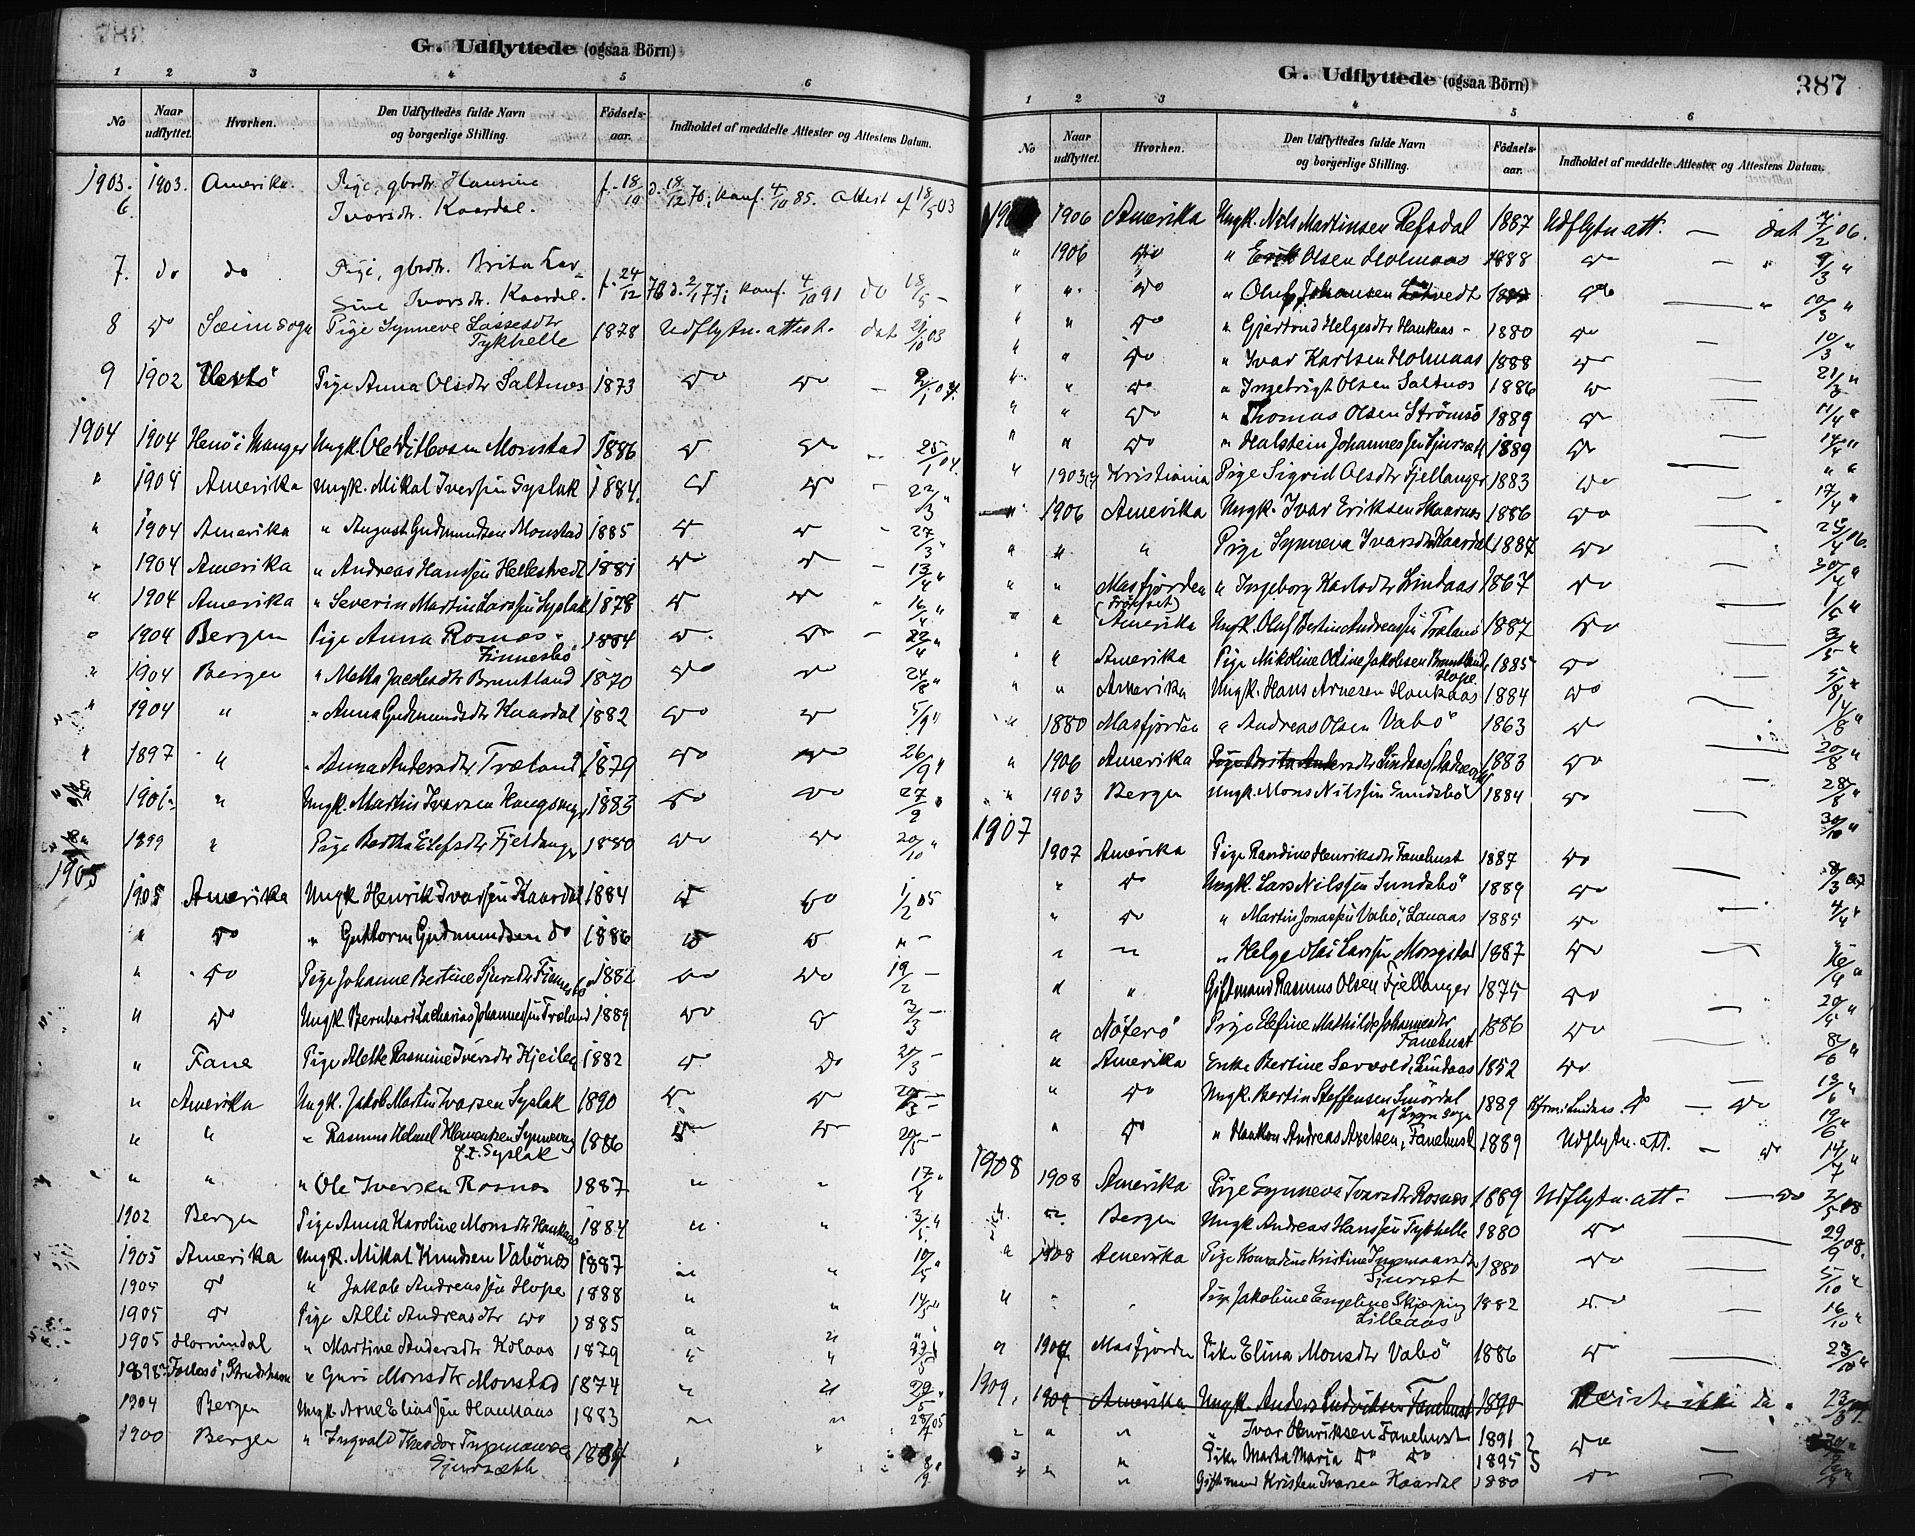 G. Udflyttede (ogsaa Börn)
1 2 3 4 5 6
No Naar udflyttet. Hvorhen. Den Udflyttedes fulde Navn og borgerlige Stilling. Födsels-aar. Indholdet af meddelte Attester og Attestens Datum.
1903. 1903. Amerika. Pige, gbrdtr. Hansine f. 18/10 d. 18/12 70; konf. 4/10 85. Attest af 18/5 03
6. Ivarsdr. Kaardal.
7. do do Pige, gbrdtr. Brita Lar- f. 24/12 76 d. 2/1 77; konf. 4/10 91 do 18/5 -
sine Ivarsdr. Kaardal.
8 do Sæimsogn Pige Synneve Lassesdtr 1878 Udflytn. attest. dat 21/10 03
Tykhelle
9 1902 Herlö Pige Anna Olsdtr Saltnes 1873 do do - 9/1 04.
1904 1904 Henö i Manger Ungk. Ole Ditlevsen Monstad 1886 do do 25/1 04.
" 1904 Amerika Ungk. Mikal Iverssen Syslak 1884. do do - 22/3 "
" 1904 Amerika " August Gudmundsen Monstad 1885 do do - 27/3 "
" 1904 Amerika " Andreas Hanssen Hellestvedt 1881 do do - 13/4 "
" 1904 Amerika " Severin Martin Larssen Syslak 1878 do do " 16/4 "
" 1904 Bergen Pige Anna Rosnæs 1884 do do - 22/4 "
Finnesbö
" 1904 Bergen " Metta Jacobsdtr Bruntland 1870 do do 24/8 "
" 1904 " " Anna Gudmundsdtr Kaardal 1882 do do 5/9 "
" 1897 " " Anna Andersdtr Træland 1879 do do 26/9 "
" 1901 " Ungk. Martin Ivarsen Haugsmyr 1883 do do 27/9 "
1899 " Pige Bertha Elefsdtr Fjellanger 1880 do do 20/10 "
1905
1905 Amerika Ungk Henrik Ivarssen Kaardal 1884 do do 1/2 05
" do " Guttorm Gudmundsen do 1886 do do " -
" do Pige Johanne Bertine Sjursdtr Finnesbö 1882 do do 19/2 -
" do Ungk. Bernhard Zacharias Johannessen Træland 1889 do do 3/3 -
" Fane Pige Mette Rasmine Iversdtr Kjeilen 1882 do do 20/3 -
" Amerika Ungk. Jakob Martin Ivarsen Syslak 1890 do do 20/3 -
" " " Rasmus Helmel Klementsen Synnevaag 1886 do do 20/3 -
f.t. Syslak
" " " Ole Iversen Rosnæs 1887 " " 17/4 "
1902 Bergen Pige Anna Karoline Monsdtr Haukaas 1884 " " 3/5 "
1905 Amerika Ungk. Mikal Knudsen Vabönæs 1887 " " 10/5 "
1905 do " Jakob Andreassen Hope 1888 " " 14/5 "
1905 do Pige Alli Andreasdtr do 1885 " " " "
1905 Hornindal " Martine Andersdtr Kolaas 1879 " " 22/5 "
1898 " Guri Monsdtr Monstad 1874 " " 29/5 "
1904 Bergen Ungk Arne Eliassen Haukaas 1883 " " 28/7 05
1900 Bergen " Ingvald Theodor Ingemansen 1884 " " 8/9 "
Gjeursæth
G. Udflyttede (ogsaa Börn) 387
1 2 3 4 5 6
No Naar udflyttet. Hvorhen. Den Udflyttedes fulde Navn og borgerlige Stilling. Födsels-aar. Indholdet af meddelte Attester og Attestens Datum.
1906 Amerika Ungk. Nils Martinsen Refsdal 1887 Udflytn att. - dat 7/2 06.
" 1906 do " Erik Olsen Holmaas 1888 do - " 9/3 "
" " do " Oluf Johansen Lötvedt do " 10/3 "
" " do " Gjertrud Helgesdtr Haukaas - 1880 do 10/3 "
" " do " Ivar Karlsen Holmaas 1888 do 21/3 "
" " do " Ingebrigt Olsen Saltnes 1886 do
" " do " Thomas Olsen Strömsö 1889 do 11/4 "
" " do " Halstein Johannessen Sjursæth 1889 do 14/4 "
" 1903 Kristiania Pige Sigrid Olsdtr Fjellanger 1883 do " "
" 1906 Amerika Ungk. Ivar Eriksen Skaarnes 1886 do 17/4 "
" " " Pige Synneva Ivarsdtr Kaardal 1887 do 25/4 06.
" " Masfjorden " Ingeborg Karlsdtr Lindaas 1867 do 30/4 "
(Fröiset)
" " Amerika Ungk. Oluf Bertin Andreassen Træland 1887 do
" " Amerika Pige Nikoline Oline Jakobsen Bruntland 1885 do
Hope
" " Amerika Ungk. Hans Arnesen Haukaas 1884 do
" 1880 Masfjorden " Andreas Olsen Vabö 1863 do 14/8 "
" 1906 Amerika Pige Brita Andersdtr Lindaas 1883 do 20/8 "
" 1903 Bergen Ungk. Mons Nilssen Sundsbö 1884 do 28/8 "
1907 30/10 "
1907 Amerika Pige Randine Henriksdtr Fanebust 1887 do
" do Ungk. Lars Nilssen Sundsbö 1889 do 8/3 07
" do " Martin Jonassen Vabö, Lauaas 1885 do 4/4 "
" " " Helge Olai Larssen Mongstad 1887 do
" " Giftmand Rasmus Olsen Fjellanger 1875 do 16/4 "
" Nöterö Pige Elefine Mathilde Johannesdtr 1886 do 20/4 "
Fanebust
" Amerika Enke Bertine Sævold, Lindaas 1852 do 8/6 "
" do Ungk. Bertin Steffensen Smördal 1889 do - do 13/6 "
af Lygre sogn
" do " Haakon Andreas Axelsen, Fanebust 1889 Udflytn. att. - do 19/6 "
1908 14/7 "
1908 Amerika Pige Synneva Ivarsdtr Rosnæs 1889 Udflytn. att. - do 2/5 08
Bergen Ungk Andreas Hanssen Tykhelle 1880 do 29/9 08.
" 1908 Amerika Pige Konradine Kristine Ingemansdtr 1880 do 5/10 "
Sjursæt
" " " Pige Jakobine Engeline Skjærping 1882 do 16/10 "
Lilleaas
" 1907 Masfjorden Pike Elina Monsdtr Vabö 1886 do 23/10 "
1909. 1909 Amerika Ungk. Anders Ludviksen Fanebust 1890 Reist ikke
2 " " Ivar Henriksen Fanebust 1891 do
3 Pike Marta Maria do do 1895
4 " " Giftmand Kristen Ivarsen Kaardal 1880 do